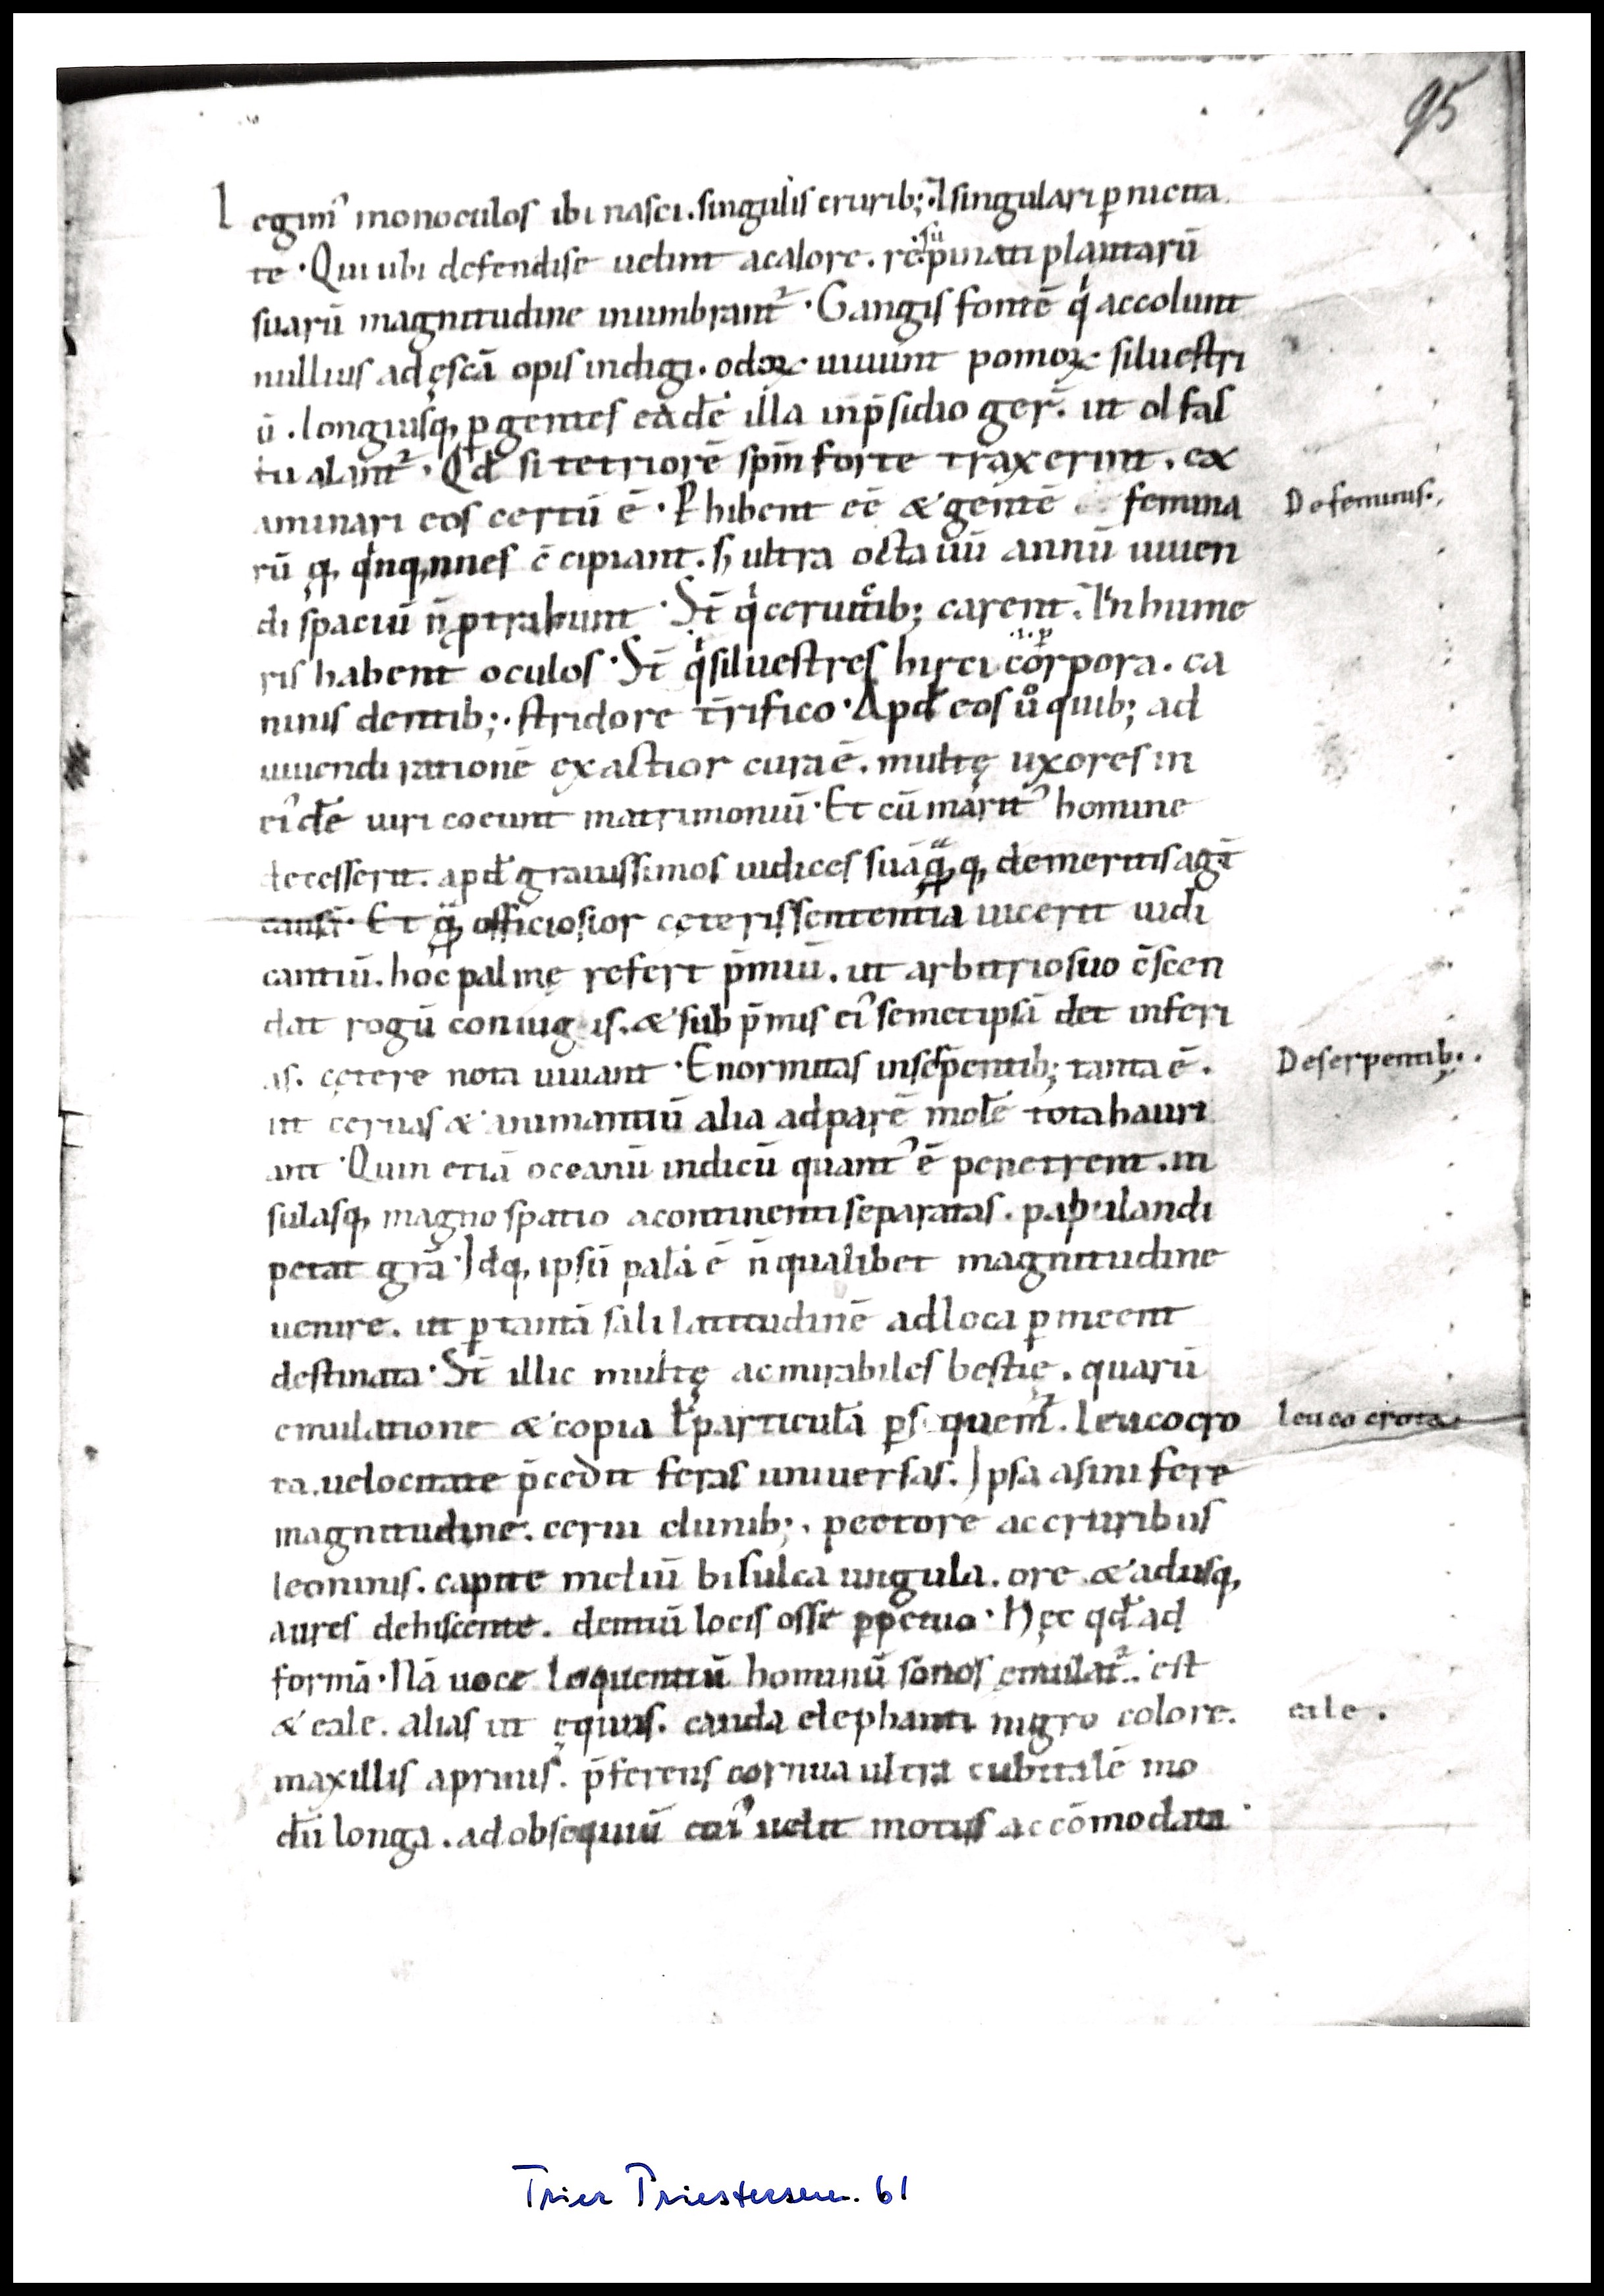 95
Legim᷒ monoculos ibi nasci. singulis crurib; . ⁊ singulari ꝑnicita
te · Qui ubi defendi se uelint a calore. resupinati plantarū
suarū magnitudine inumbrant᷑ · Gangis fontē qͥ accolunt
nullius ad ęscā opis indigi. odorꝝ uiuunt pomorꝝ siluestri
ū. longiusq; ꝑgentes eadē illa in p̄sidio ger̄. ut olfac
tu alant᷑. Qđ si tetriorē spm̄ forte traxerint. ex
aminari eos certū ē · Phibent eē & gentē femina
De feminis.
rū q; qͥnq;nnes c̄cipiant. ſ; ultra octauū annū uiuen
di spaciū n̄ ꝓtrahunt · St̄ qͥ ceruicib; carent. ⁊ in hume
ris habent oculos · St̄ qͥ siluestres hirci corpora. ca
ninis dentib; . stridore t̄rifico · Apđ eos ů quib; ad
uiuendi rationē exactior cura ē. multę uxores in
ei᷒dē uiri coeunt matrimoniū · Et cū marit᷒ homine
decesserit. apđ grauissimos iudices suā quęq; de meritis agt̄
causā. Et quę officiosior cęteris sententia uicerit iudi
cantiū. hoc palmę refert p̄miū. ut arbitrio suo c̄scen
dat rogū coniugis. & sup̄mis ei᷒ semetipsā det inferi
as. cętere nota uiuant · Enormitas in serpentib; tanta ē.
De serpentib; .
ut ceruas & animantiū alia ad parē molē tota hauri
ant · Quin etiā oceanū indicū quant᷒ ē penetrent. in
sulasq; magno spatio a continenti separatas. pabulandi
petat gr̄a · Idq; ipsū palā ē n̄ qualibet magnitudine
uenire. ut ꝑ tantā sali latitudinē ad loca ꝑmeent
destinata · St̄ illic multę ac mirabiles bestię. quarū
emulatione & copia ł particulā ꝑsequem᷒. Leucocro
leucocrota
ta. uelocitate p̄cedit feras uniuersas. Ipsa asini fere
magnitudine. cerui clunib; . pectore ac cruribus
leoninis. capite meliū bisulca ungula. ore & adusq;
aures dehiscente. dentiū locis osse ꝑpetuo · Hęc qđ ad
formā · Nā uoce loquentiū hominū sonos emulat᷑. est
& eale. alias ut ęquus. cauda elephanti nigro colore.
eale.
maxillis aprinis. p̄ferens cornua ultra cubitalē mo
dū longa. ad obsequiū cui᷒ uelit motus accōmodata ·
Trier Priestersem. 61